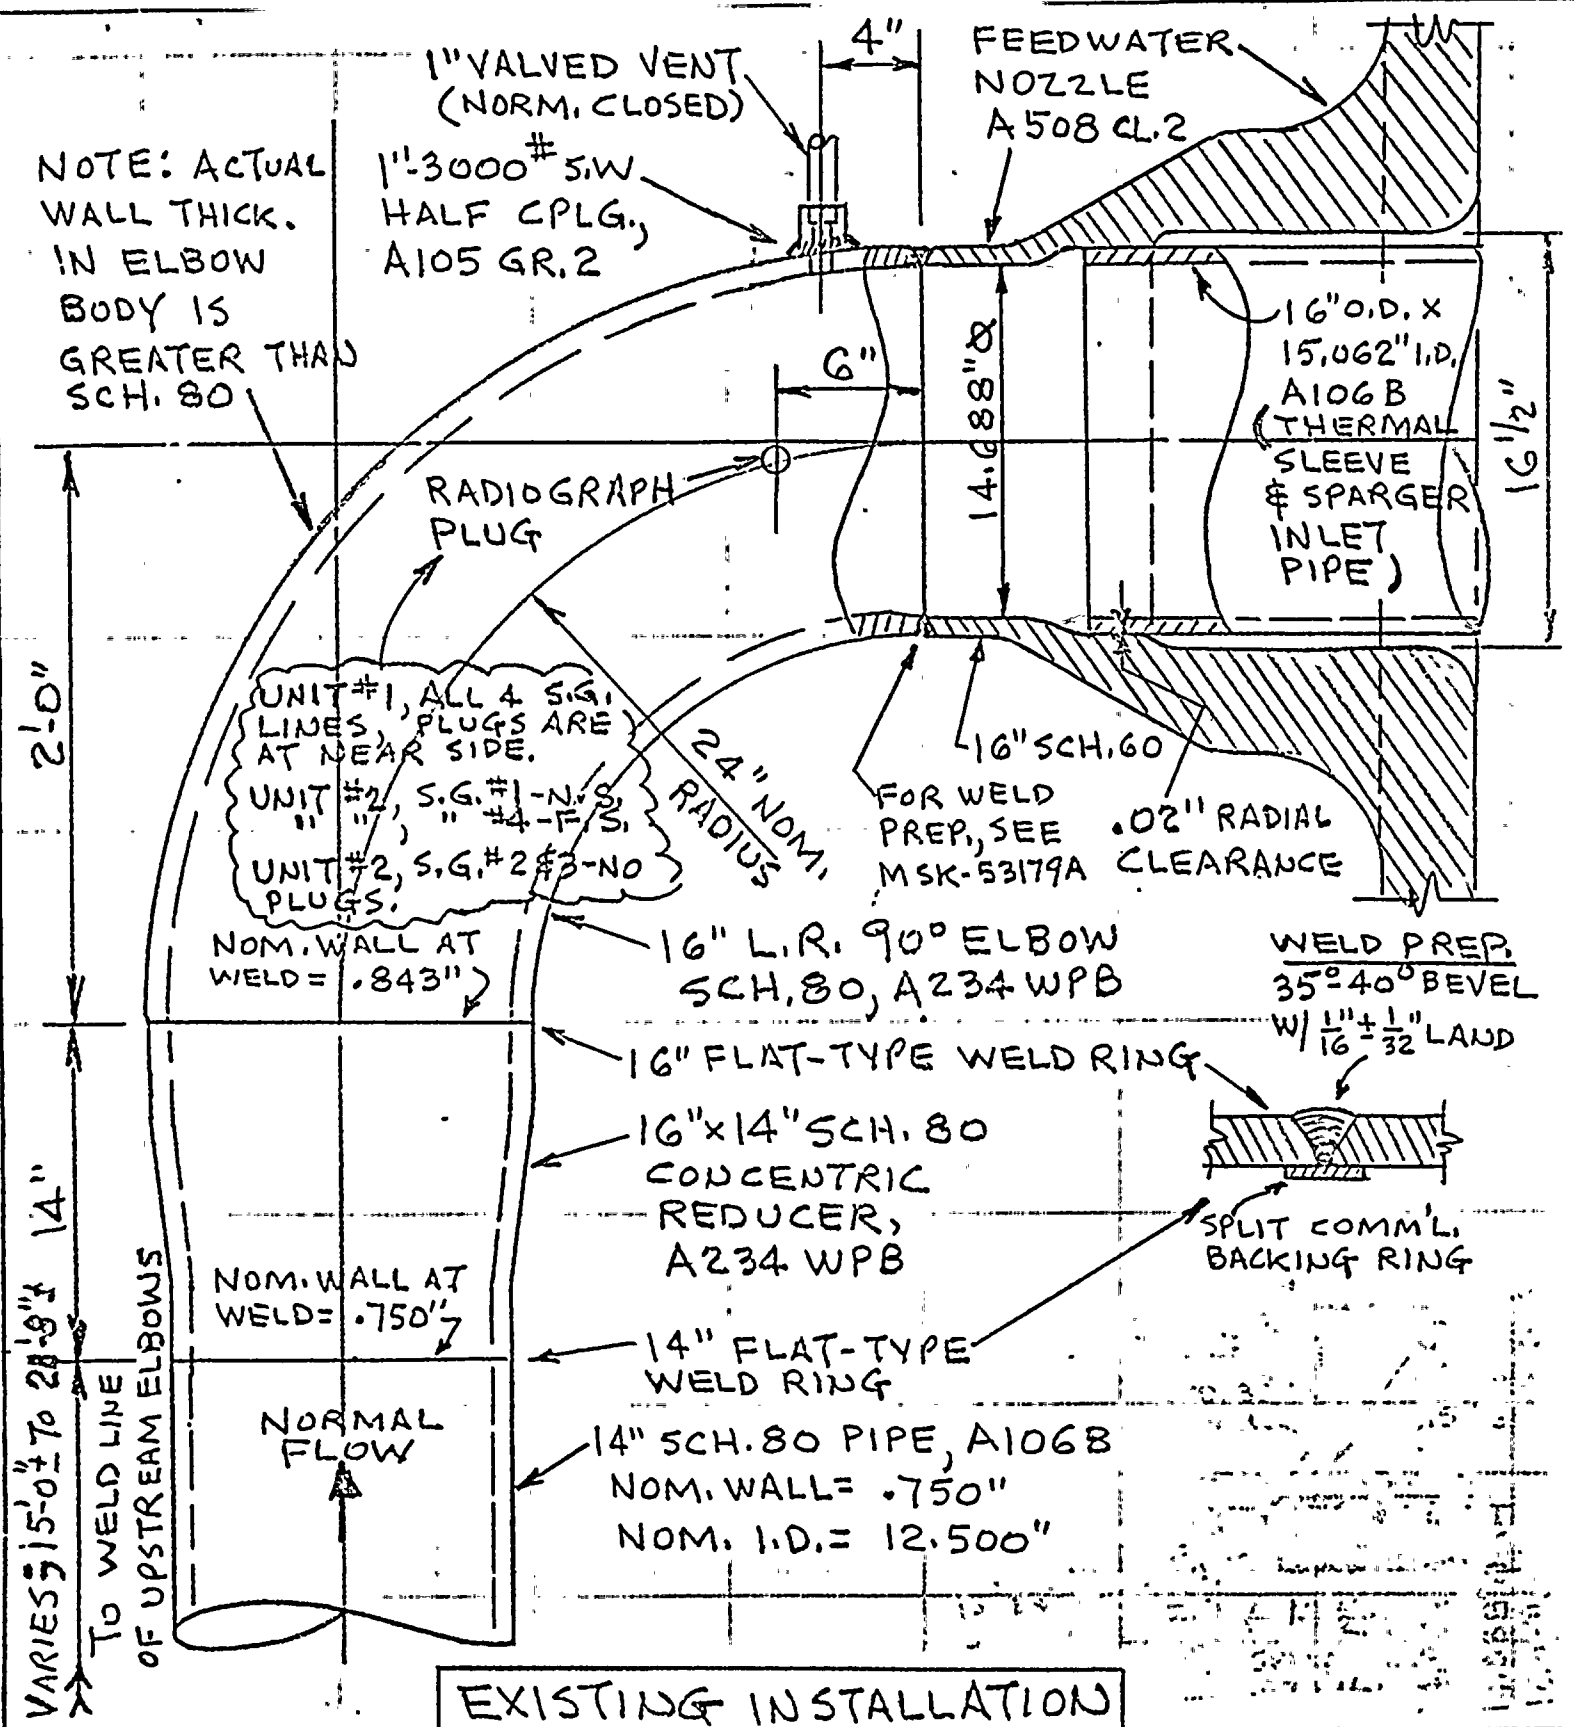 1" VALVED VENT
(NORM. CLOSED)
4"
FEEDWATER
NOZZLE
A508 CL.2
NOTE: ACTUAL
WALL THICK.
IN ELBOW
BODY IS
GREATER THAN
SCH. 80
1"-3000# S.W.
HALF CPLG.,
A105 GR.2
6"
14.688"Ø
16" O.D. X
15.062" I.D.
A106B
(THERMAL
SLEEVE
& SPARGER
INLET
PIPE)
16 1/2"
RADIOGRAPH
PLUG
2'-0"
UNIT #1, ALL 4 S.G.
LINES, PLUGS ARE
AT NEAR SIDE.
UNIT #2, S.G. #1-N.S.
" ", " #4-F.S.
UNIT #2, S.G. #2 & 3-NO
PLUGS.
24" NOM.
RADIUS
16" SCH. 60
FOR WELD
PREP., SEE
MSK-53179A
.02" RADIAL
CLEARANCE
NOM. WALL AT
WELD = .843"
16" L.R. 90° ELBOW
SCH. 80, A234 WPB
WELD PREP.
35°-40° BEVEL
W/ 1/16" ± 1/32" LAND
16" FLAT-TYPE WELD RING
16"x14" SCH. 80
CONCENTRIC
REDUCER,
A234 WPB
14"
SPLIT COMM'L.
BACKING RING
NOM. WALL AT
WELD = .750"
14" FLAT-TYPE
WELD RING
NORMAL
FLOW
14" SCH. 80 PIPE, A106B
NOM. WALL = .750"
NOM. I.D. = 12.500"
VARIES; 15'-0"± TO
TO WELD LINE
OF UPSTREAM ELBOWS
EXISTING INSTALLATION